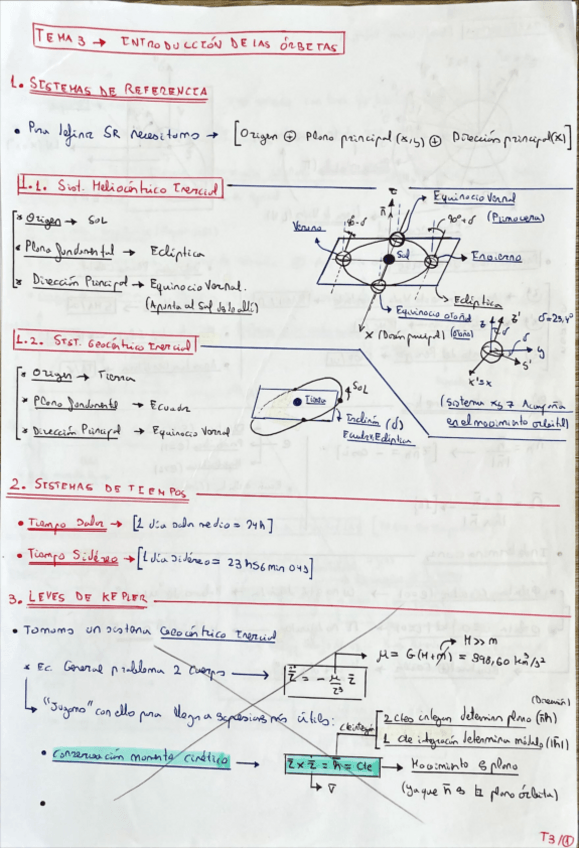 TEMA 3 → INTRODUCCIÓN DE LAS ÓRBITAS
1. SISTEMAS DE REFERENCIA
• Para definir SR necesitamos → [Origen ⊕ Plano principal (x,y) ⊕ Dirección principal (x)]
1.1. Sist. Heliocéntrico Inercial
* Origen → Sol
* Plano fundamental → Eclíptica
* Dirección Principal → Equinocio Vernal.
(Apunta al Sol desde allí)
Equinocio Vernal
(Primavera)
Verano
90-δ
90+δ
Sol
Invierno
Eclíptica
Equinocio otoñal
X (Dirección principal) (otoño)
z
z'
δ
y
δ
s'
x's x
(Sistema xs ↗ Acompaña
en el movimiento orbital)
1.2. Sist. Geocéntrico Inercial
* Origen → Tierra
* Plano fundamental → Ecuador
* Dirección Principal → Equinocio Vernal
Tierra
Sol
Inclinación (δ)
Ecuador Eclíptica
2. SISTEMAS DE TIEMPOS
• Tiempo Solar → [1 día solar medio = 24h]
• Tiempo Sidéreo → [1 día sidéreo = 23h56min04s]
3. LEYES DE KEPLER
• Tomamos un sistema Geocéntrico Inercial
M >> m
* Ec. General problema 2 cuerpos → r̈ = - μ/r³ r̄
μ = G(M+m) = 398,60 km³/s²
"Jugamos" con ello para llegar a expresiones más útiles:
(Dirección)
2 ctes integran determinan plano (h̄)
1 cte integración determina módulo (|h̄|)
cte integra
• Conservación momento cinético → r̄ x ṙ = h̄ = Cte → Movimiento es plano
v̄
(ya que h̄ es ⊥ plano órbita)
T3/①